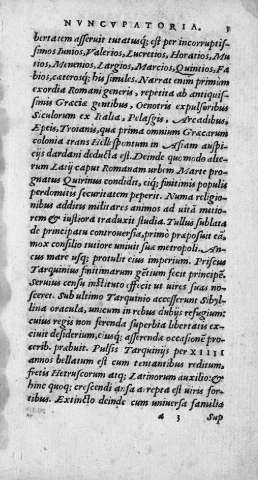 NVNCVPATORIA. 3
bertatem asseruit tutatusq; est per incorruptis-
simos Iunios, Valerios, Lucretios, Horatios, Mu
tios, Menenios, Largios, Marcios, Quintios, Fa
bios, cæterosq; his similes. Narrat enim primùm
exordia Romani generis, repetita ab antiquis-
simis Græciæ gentibus, Oenotris expulsoribus
Siculorum ex Italia, Pelasgis, Arcadibus,
Epeis, Troianis, quæ prima omnium Græcarum
colonia trans Hellespontum in Asiam auspi-
cijs dardani deducta est. Deinde quo modo alte-
rum Latij caput Romanam vrbem Marte pro-
gnatus Quirinus condidit, eiq; finitimis populis
perdomitis securitatem peperit. Numa religio-
nibus additus militares animos ad vitã mitiorem
& iustiora traduxit studia. Tullus sublata
de principatu controuersia, primò præposuit eã,
mox consilio tutiore vniuit suæ metropoli. An-
cus mare vsq; protulit eius imperium. Priscus
Tarquinius finitimarum gẽtium fecit principẽ.
Seruius censu instituto effecit vt vires suas no-
sceret. Sub vltimo Tarquinio accesserunt Sibyl-
lina oracula, vnicum in rebus dubijs refugium:
cuius regis non ferenda superbia libertatis ex-
ciuit desiderium, eiusq; asserendæ occasionẽ pro-
cerib. præbuit. Pulsis Tarquinijs per XIIII
annos bellatum est cum tentantibus reditum,
fretis Hetruscorum atq; Latinorum auxilio: &
hinc quoq; crescendi ansa arrepta est viris for-
tibus. Extincto deinde cum vniuersa familia
a 3 Sup